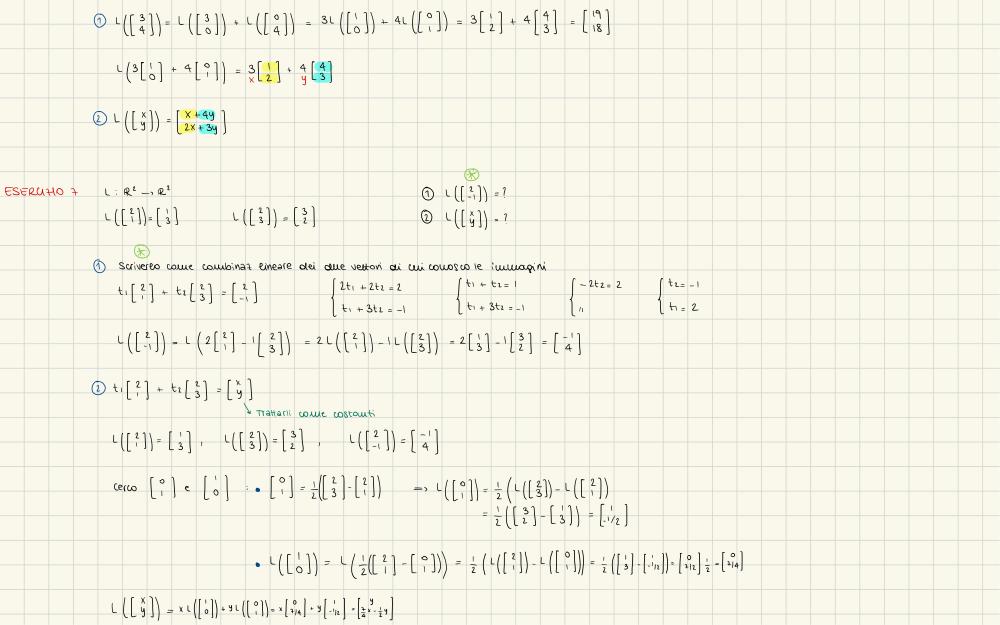 ① L([3 4]) = L([3 0]) + L([0 4]) = 3L([1 0]) + 4L([0 1]) = 3[1 2] + 4[4 3] = [19 18]
L(3[1 0] + 4[0 1]) = 3[1 2] + 4[4 3]
x y
② L([x y]) = [x+4y 2x+3y]
ESERCIZIO 7 L : R² → R² ① L([2 -1]) = ?
L([2 1]) = [1 3] L([2 3]) = [3 2] ② L([x y]) = ?
① Scriverlo come combinaz lineare dei due vettori di cui conosco le immagini
t₁[2 1] + t₂[2 3] = [2 -1] { 2t₁ + 2t₂ = 2 t₁ + 3t₂ = -1 { t₁ + t₂ = 1 t₁ + 3t₂ = -1 { -2t₂ = 2 " { t₂ = -1 t₁ = 2
L([2 -1]) = L(2[2 1] - 1[2 3]) = 2L([2 1]) - 1L([2 3]) = 2[1 3] - 1[3 2] = [-1 4]
② t₁[2 1] + t₂[2 3] = [x y]
↘ Trattarli come costanti
L([2 1]) = [1 3] , L([2 3]) = [3 2] , L([2 -1]) = [-1 4]
cerco [0 1] e [1 0] : • [0 1] = 1/2([2 3] - [2 1]) ⇒ L([0 1]) = 1/2(L([2 3]) - L([2 1]))
= 1/2([3 2] - [1 3]) = [1 -1/2]
• L([1 0]) = L(1/2([2 1] - [0 1])) = 1/2(L([2 1]) - L([0 1])) = 1/2([1 3] - [1 -1/2]) = [0 7/2] 1/2 = [0 7/4]
L([x y]) = xL([1 0]) + yL([0 1]) = x[0 7/4] + y[1 -1/2] = [y 7/4x - 1/2y]